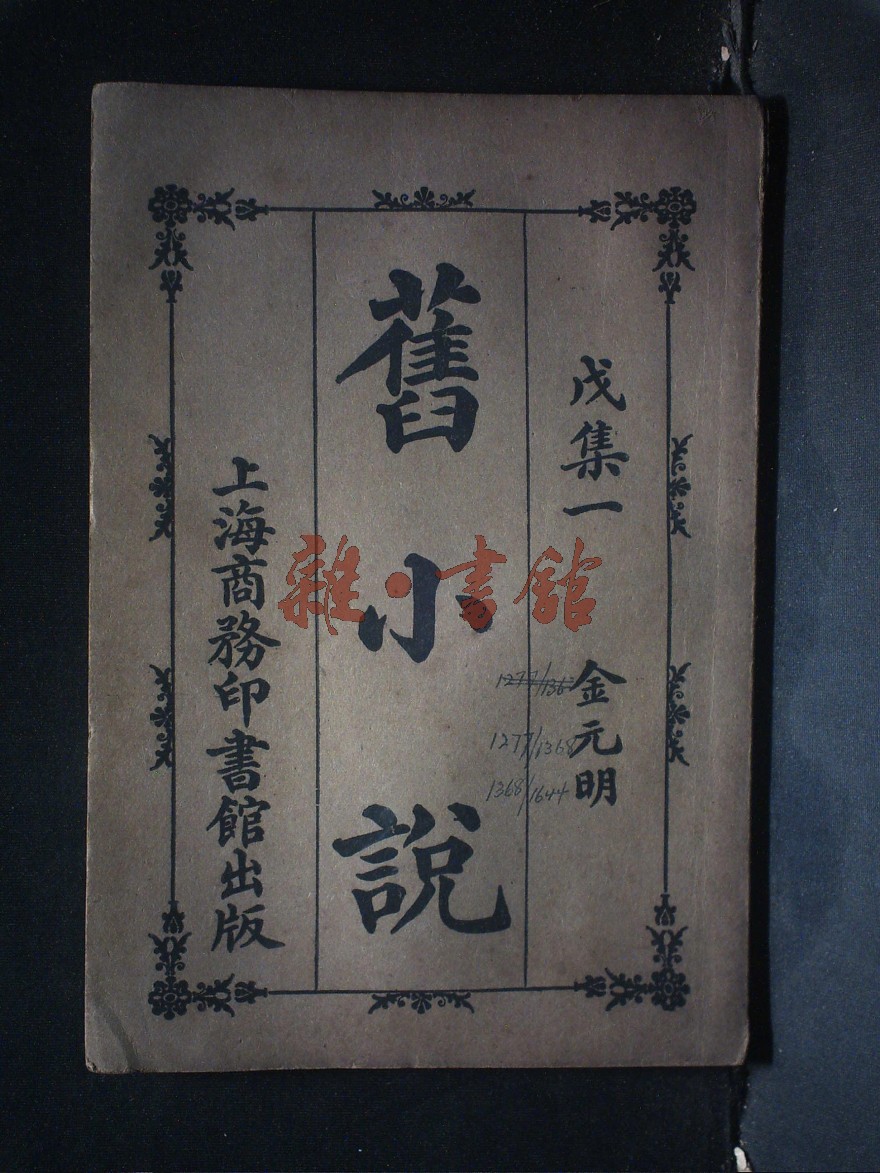 戊集一 金元明
舊小說
上海商務印書館出版
雜·書館
1277/1368
1368/1644